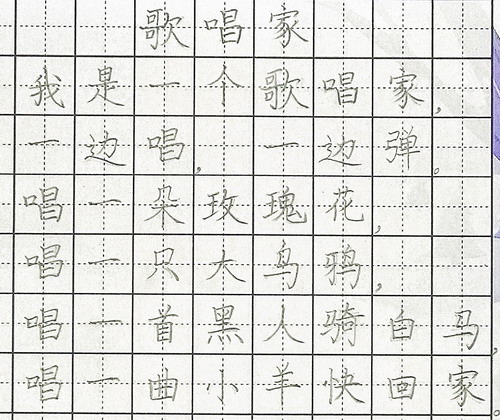 歌唱家
我是一个歌唱家,
一边唱,一边弹。
唱一朵玫瑰花,
唱一只大鸟鸦,
唱一首黑人骑自马,
唱一曲小羊快回家。